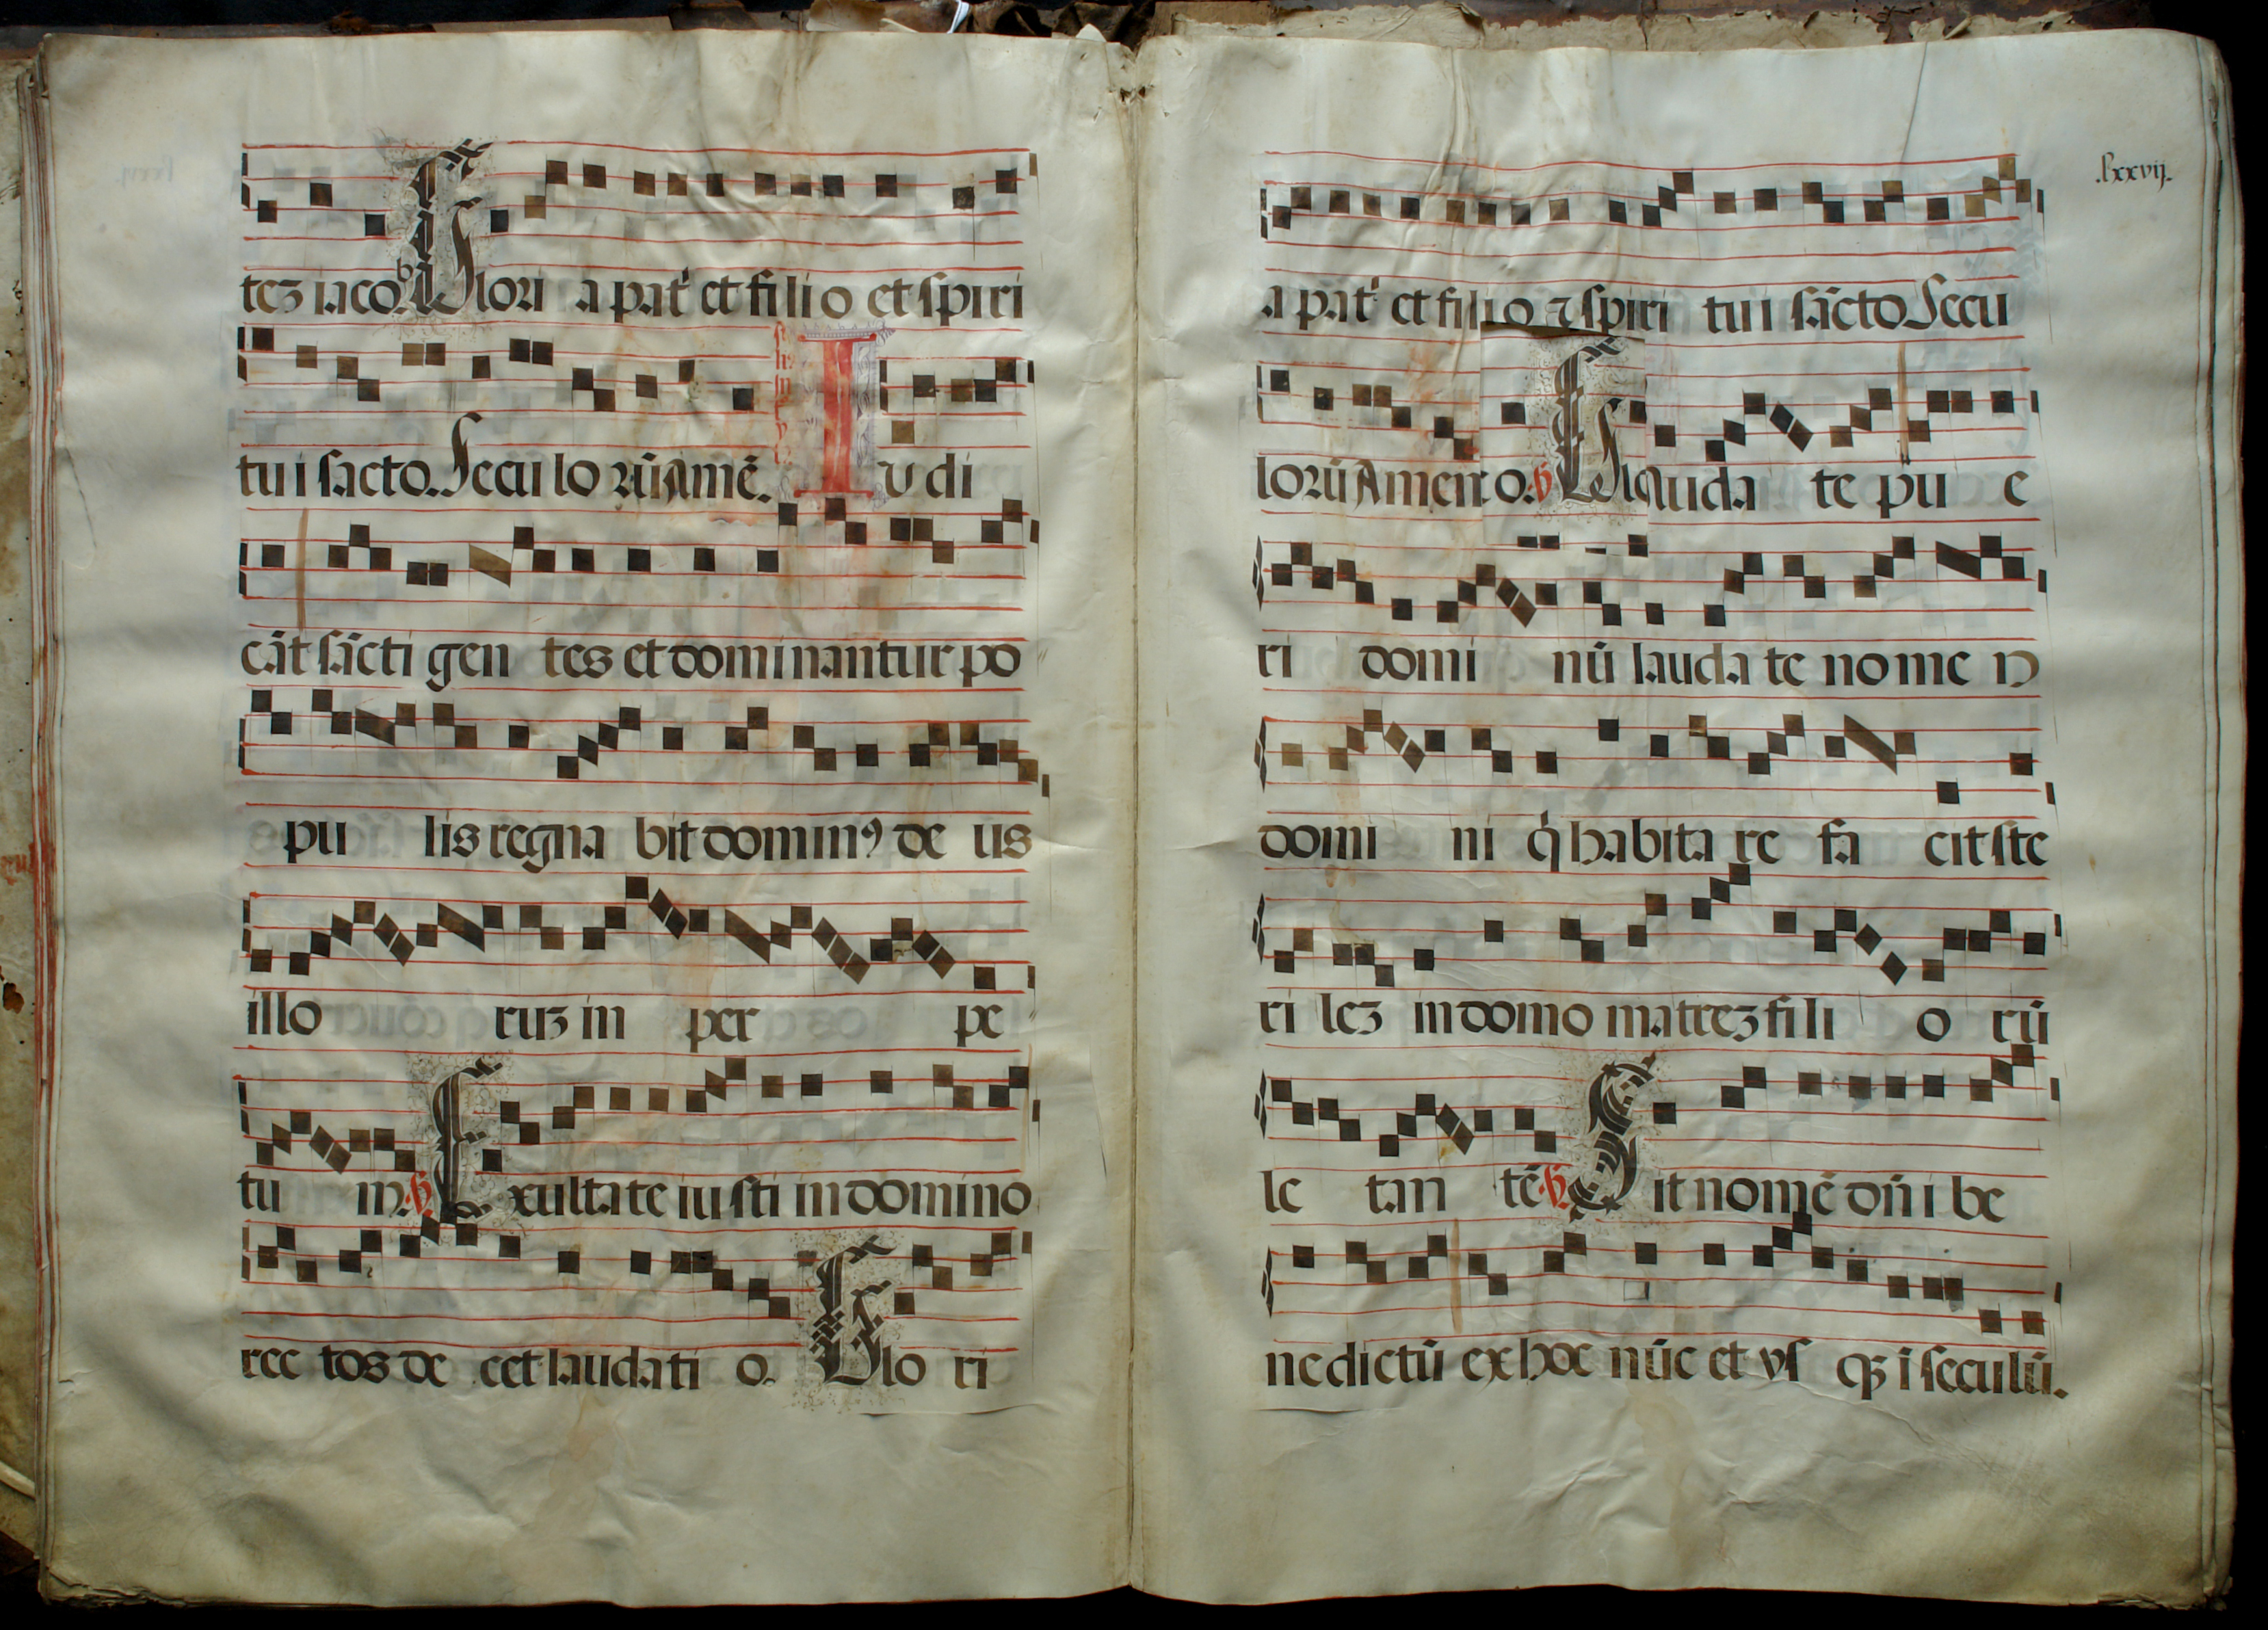 tez iaco℣. Glori a pat̉ et filio et spiri
tui sācto. Seculorū amē. Iudi
cāt sācti gentes et dominantur po
pulis regnabit dominꝰ deus
illoruz in perpe
tuum. ℣. Exultate iusti in domino
rectos decet laudatio. Glori
.lxxvij.
a pat̉ et filio ⁊ spiritui sācto Secu
lorū Amen o. ℣. Gl Laudate pue
ri dominū laudate nomen
domini q̇ habitare facit ste
rilez in domo matrez filiorū
letantē ℣. Sit nomē dn̄i be
nedictū ex hoc nūc et vsqꝫ ī seculū.